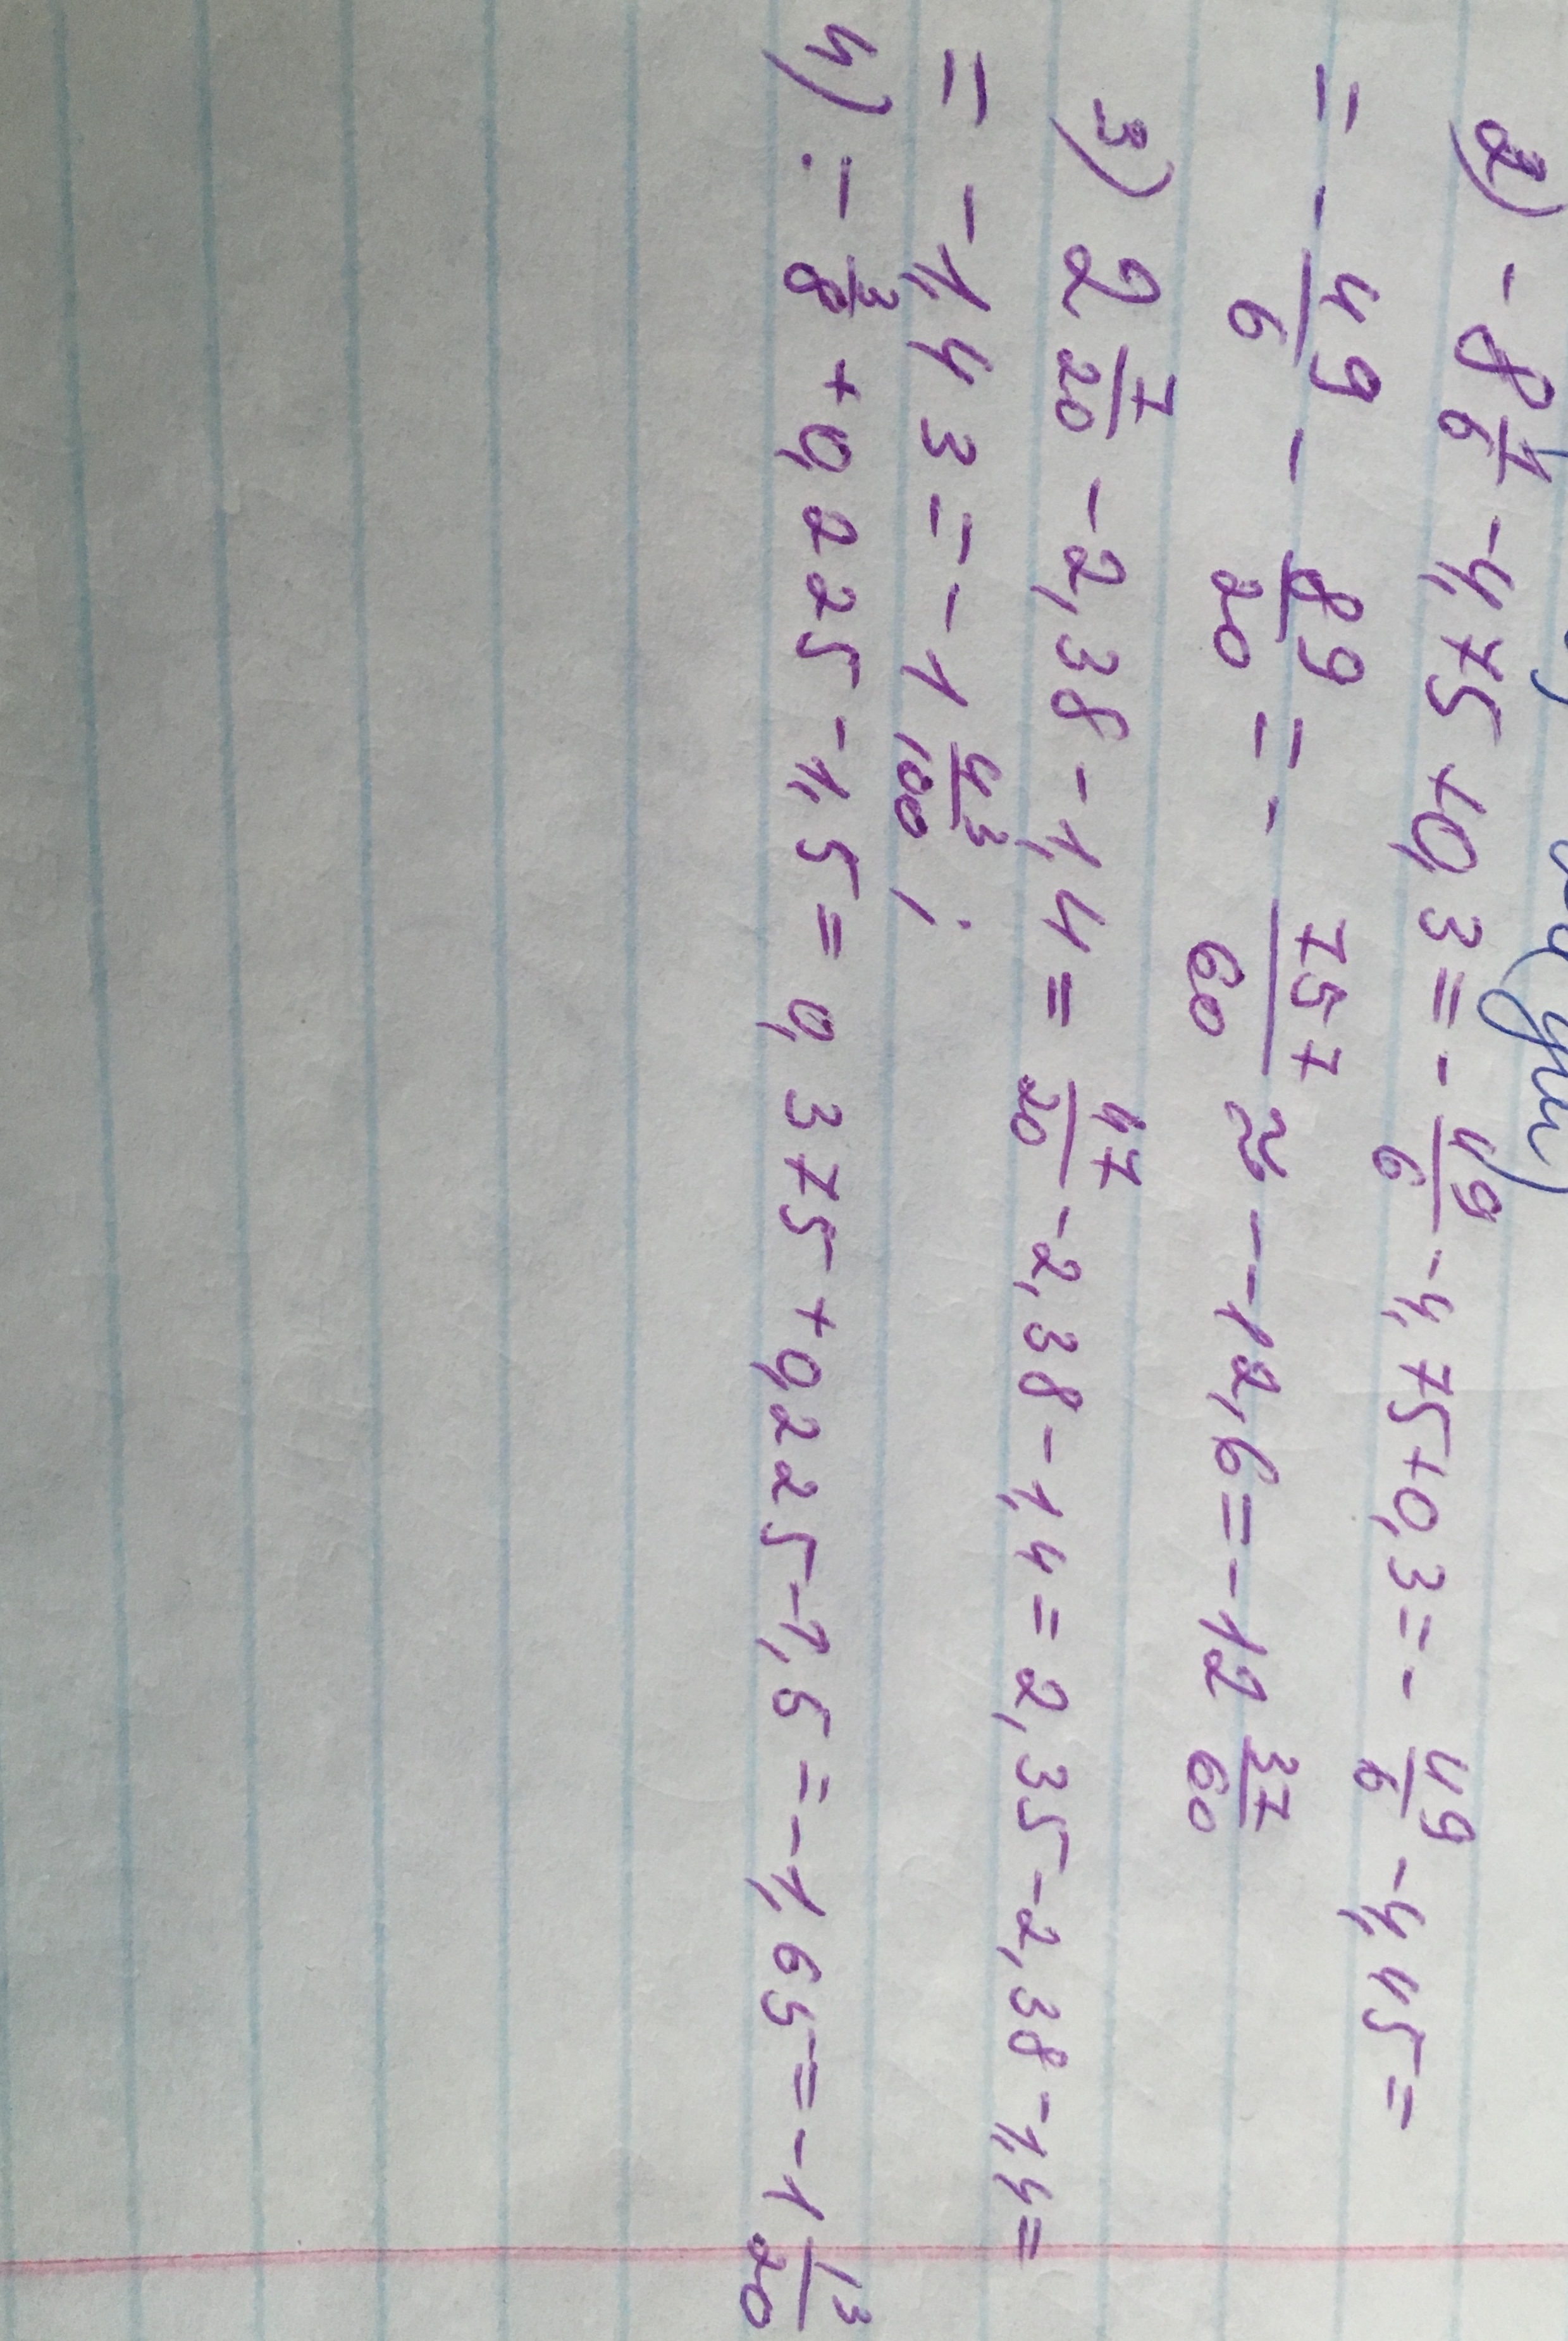 2) -8 1/6 - 4,75 + 0,3 = - 49/6 - 4,75 + 0,3 = - 49/6 - 4,45 =
= - 49/6 - 89/20 = - 757/60 ≈ -12,6 = -12 37/60
3) 2 7/20 - 2,38 - 1,4 = 47/20 - 2,38 - 1,4 = 2,35 - 2,38 - 1,4 =
= -1,43 = -1 43/100 ;
4) : - 3/8 + 0,225 - 1,5 = 0,375 + 0,225 - 1,5 = -1,65 = -1 13/20